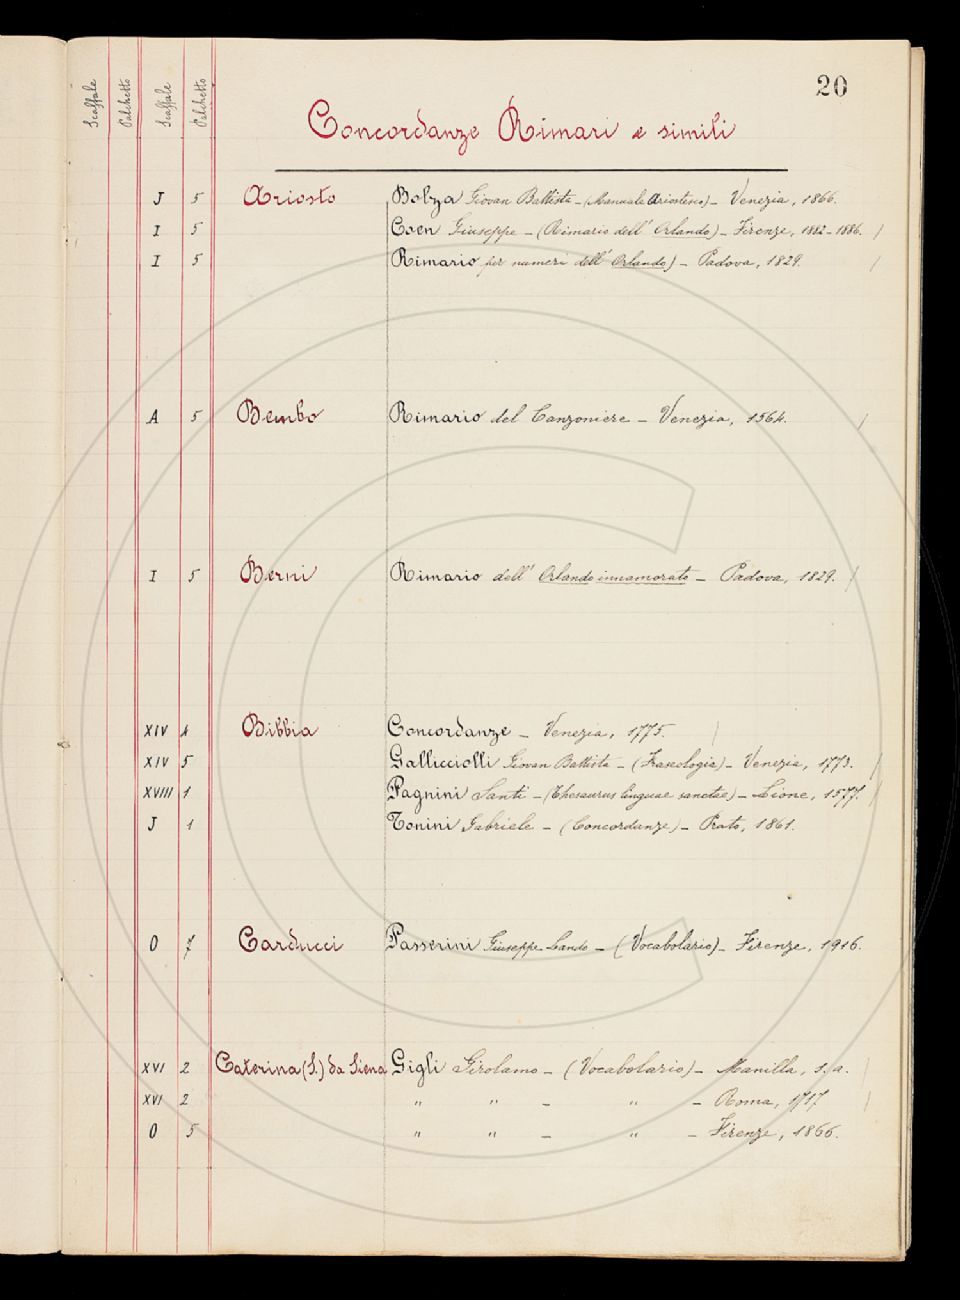 20
Scaffale Palchetto Scaffale Palchetto
Concordanze Rimari e simili
J 5 Ariosto Bolza Giovan Battista - (Manuale Ariostesco) - Venezia, 1866.
I 5 Coen Giuseppe - (Rimario dell' Orlando) - Firenze, 1882-1886. /
I 5 Rimario per numeri dell' Orlando) - Padova, 1829. /
A 5 Bembo Rimario del Canzoniere - Venezia, 1564. /
I 5 Berni Rimario dell' Orlando innamorato - Padova, 1829. /
XIV 4 Bibbia Concordanze - Venezia, 1775. /
XIV 5 Gallicciolli Giovan Battista - (Fraseologia) - Venezia, 1773. /
XVIII 1 Pagnini Santi - (Thesaurus linguae sanctae) - Lione, 1577. /
J 1 Tonini Gabriele - (Concordanze) - Prato, 1861.
O 7 Carducci Passerini Giuseppe Lando - (Vocabolario) - Firenze, 1916.
XVI 2 Caterina (S.) da Siena Gigli Girolamo - (Vocabolario) - Manilla, s. a. /
XVI 2 " " - " - Roma, 1717 /
O 5 " " - " - Firenze, 1866.